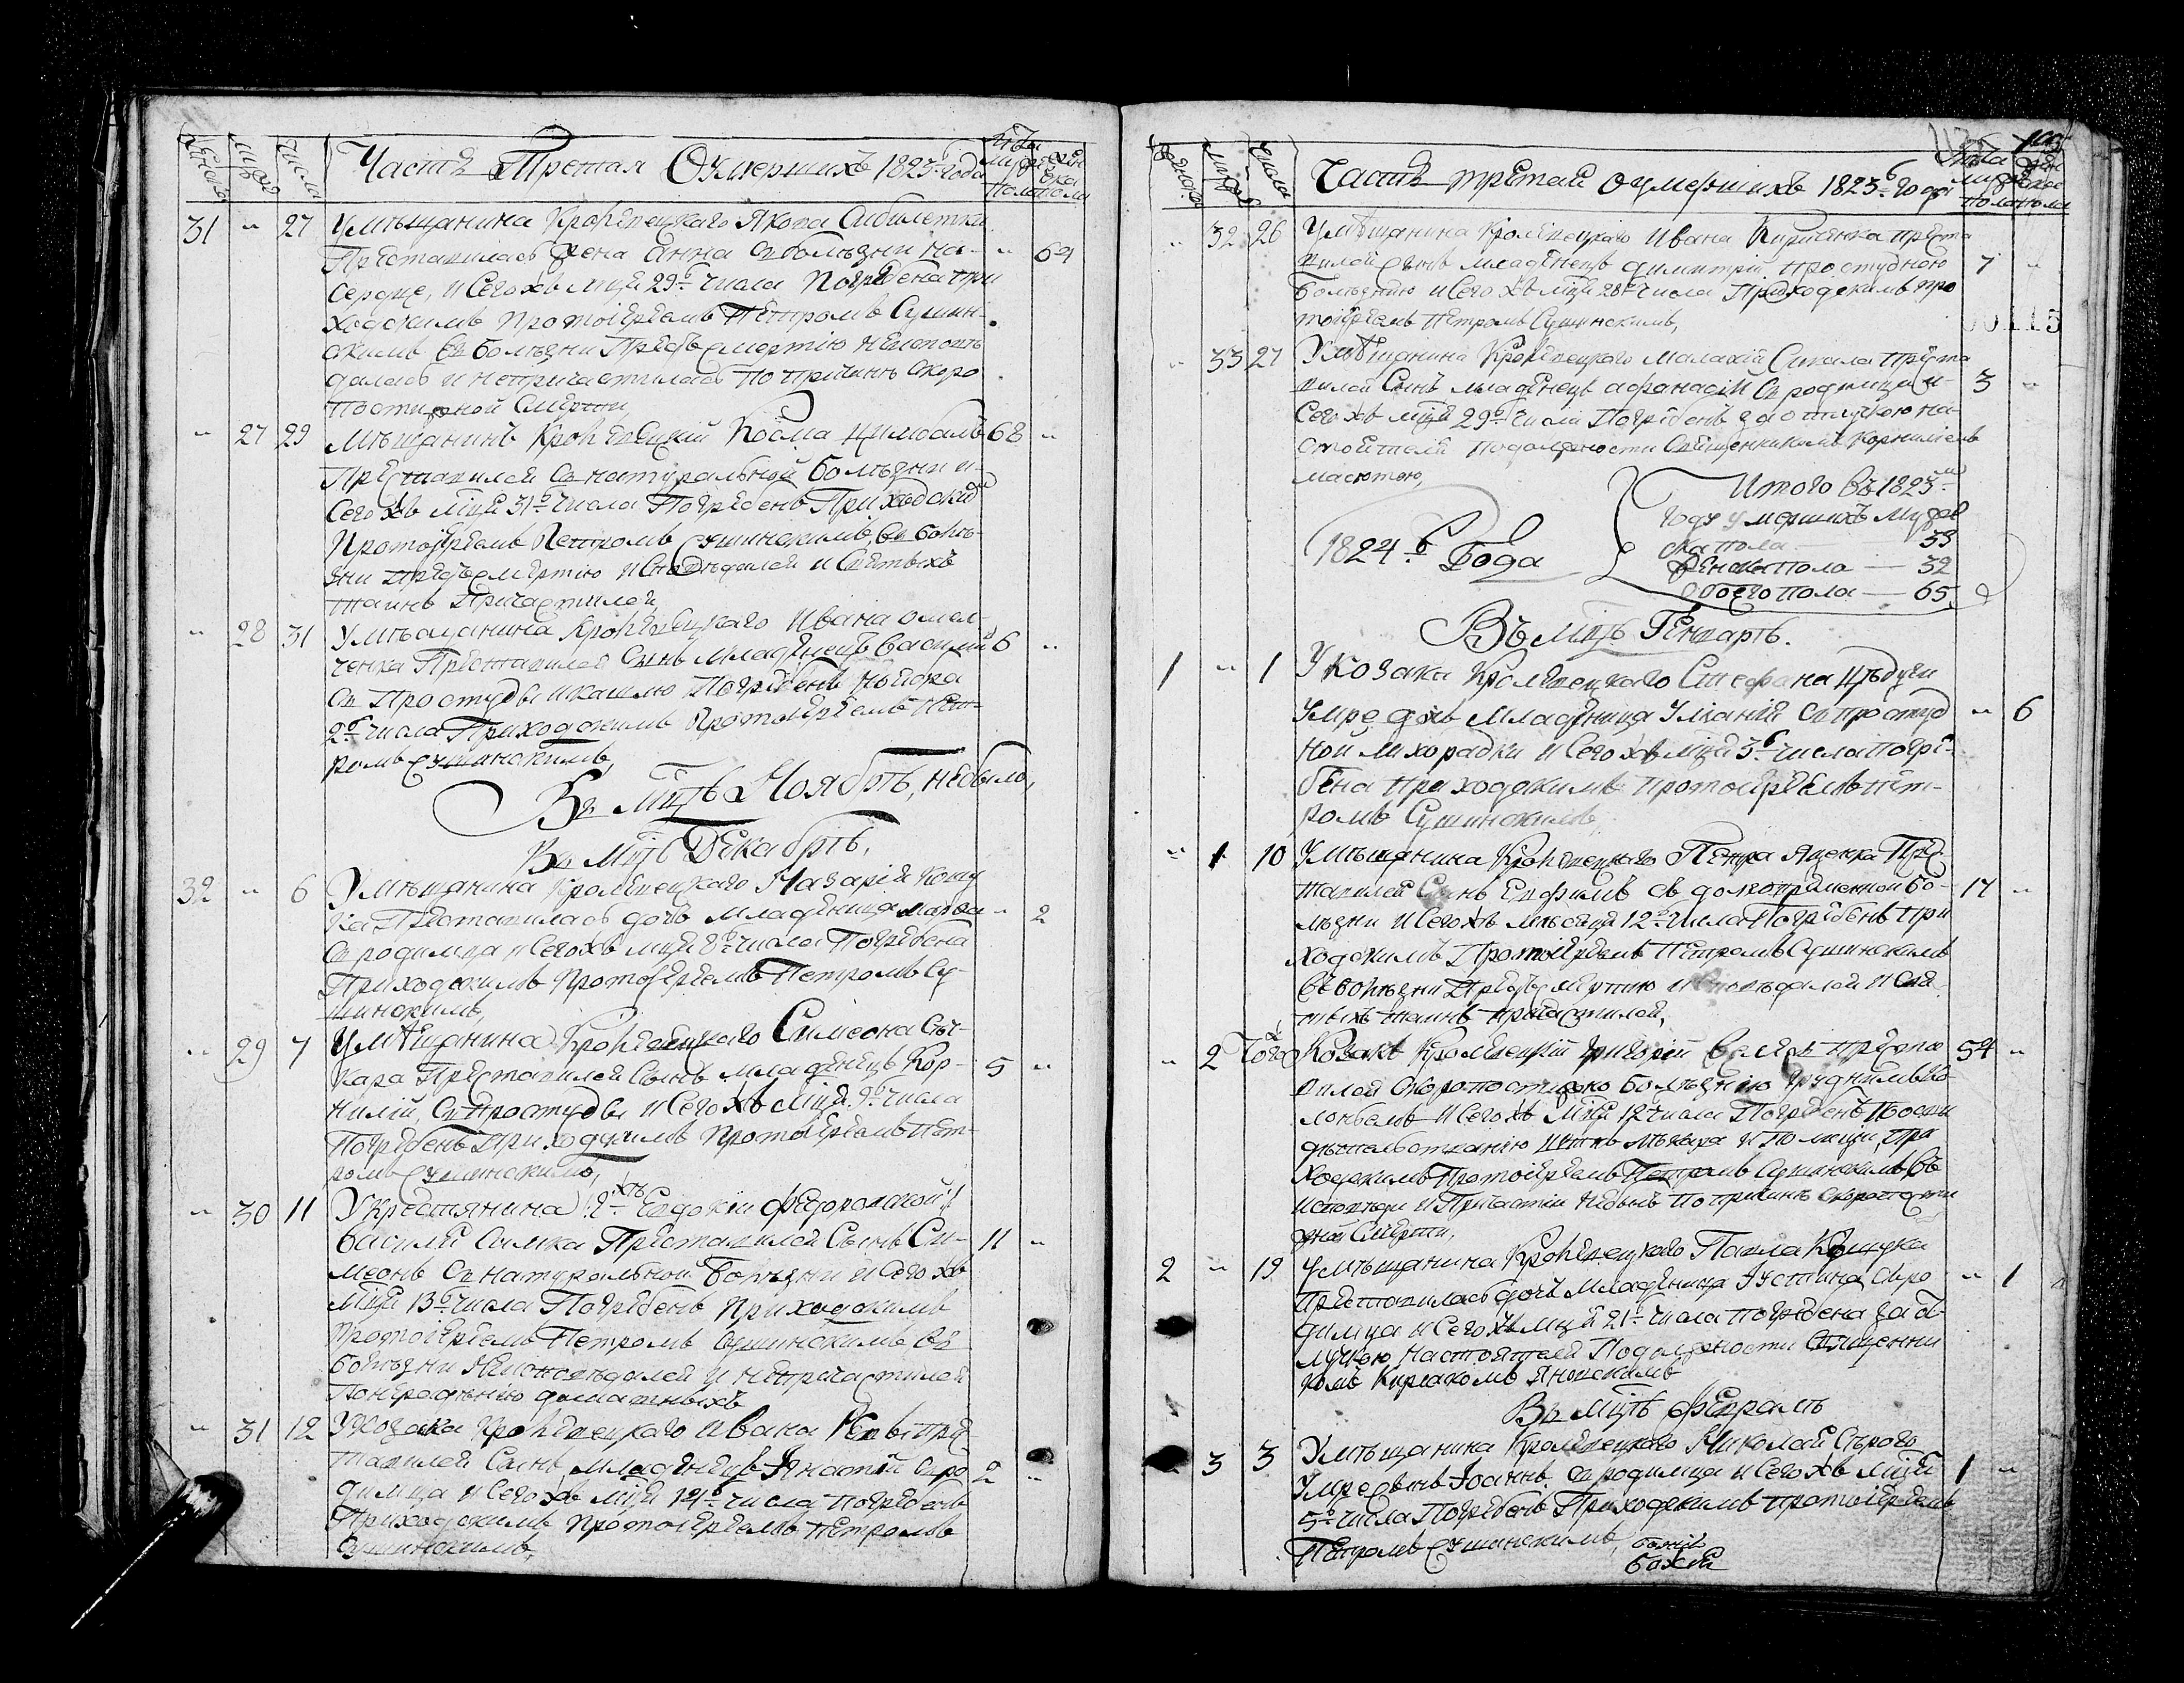 женска
мужск
числа
Часть Третая Оумершихъ 1823 года
лѣта
мужес
пола
жен
ска
пола
31 " 27 У мѣщанина Кролевецкаго Якова
Преставилась жена Анна съ болѣзни на " 64
сердце, и сего жъ мца 29 числа Погребена при
ходскимъ Протоіереемъ Петромъ Сушин-
скимъ въ болѣзни Предъ смертію неисповѣ
далась и непричастилась по причинѣ скоро
постижной смерти,
" 27 29 Мѣщанинъ Кролевецкій Козма Цимбалъ 68 "
Преставился съ натуральной болѣзни и
сего жъ мца 31 числа Погребенъ Приходский
Протоіереемъ Петромъ Сушинскимъ, въ болѣ-
зни предъ смертію исповѣдался и святыхъ
таинъ Причастился,
" 28 31 У мѣщанина Кролевецкаго Ивана Омел-
ченка Преставился сынъ младенецъ Василій 6 "
съ простуды и кашлю Погребенъ ноября
2 числа Приходскимъ Протоіереемъ Пет-
ромъ Сушинскимъ,
Въ мцѣ Ноябрѣ, небыло,
Въ мцѣ Декабрѣ,
32 " 6 У мѣщанина Кролевецкаго Назарія
ка Преставилась дочь младеница Марфа " 2
съ родимца и сего жъ мца 8 числа Погребена
Приходскимъ Протоіереемъ Петромъ Су-
шинскимъ,
" 29 7 У мѣщанина Кролевецкаго Симеона
кара Преставился сынъ младенецъ Кор- 5 "
нилій, съ простуды и сего жъ мца 9 числа
Погребенъ Приходскимъ Протоіереемъ Пет-
ромъ Сушинскимъ,
" 30 11 У крестянина Евдокіи Федоровской
Василія Сомка Преставился сынъ Си- 11 "
меонъ съ натуральной болѣзни и сего жъ
мца 13 числа Погребенъ Приходскимъ
Протоіереемъ Петромъ Сушинскимъ въ
болѣзни неисповѣдался и непричастился
домашныхъ
" 31 12 У козака Кролевецкаго Ивана прес
тавился сынъ младенецъ Игнатій съ ро 2 "
димца и сего жъ мца 14 числа погребенъ
Приходскимъ Протоіереемъ Петромъ
Сушинскимъ,
женска
мужск
числа
Часть третая оумершихъ 1823 года
лѣта
мужес
пола
жен
ска
пола
00115
" 32 26 У мѣщанина Кролевецкаго Ивана Кириенка преста
вился сынъ младенецъ Димитрій простудною 7 "
болѣзнію и сего жъ мца 28 числа Приходскимъ про
тоіереемъ Петромъ Сушинскимъ,
" 33 27 У мѣщанина Кролевецкаго Малахія преста
вился сынъ младенецъ Афанасій съ родимца и 3 "
сего жъ мца 29 числа Погребенъ за отлучкою на
стоятеля по должности священникомъ Корниліемъ
Масютою,
Итого въ 1823м
году умершихъ мужес
ска пола 33
женска пола — 32
обоего пола — 65
1824 Года
Въ мцѣ Генварѣ.
1 " 1 У козака Кролевецкаго Стефана
умре дочь младеница Уліанія съ простуд " 6
ной лихорадки и сего жъ мца 3 числа погре-
бена приходскимъ протоіереемъ Пет-
ромъ Сушинскимъ,
" 1 10 У мѣщанина Кролевецкаго Петра Яценка Прес
тавился сынъ Евфимъ съ долговременной бо- 17 "
лѣзни и сего жъ мѣсяца 12 числа Погребенъ при
ходскимъ Протоіереемъ Петромъ Сушинскимъ
въ болѣзни Предъ смертію исповѣдался и свя
тыхъ таинъ причастился,
" 2 Тогожъ Козакъ Кролевецкій Григорій преста 54 "
вился скоропостижно болѣзнію груднымъ
и сего жъ мца 12 числа Погребенъ по
и полиціи, при
ходскимъ Протоіереемъ Петромъ Сушинскимъ въ
исповѣди и Причастіи небылъ по причинѣ скоропости
жной смерти,
2 " 19 У мѣщанина Кролевецкаго Павла
преставилась дочь младеница Іустина съ ро " 1
димца и сего жъ мца 21 числа погребена за от
лучкою настоятеля По должности священни
комъ Киріакомъ Яновскимъ
Въ мцѣ Февралѣ
" 3 3 У мѣщанина Кролевецкаго Николая Сѣрого
умре сынъ Іоаннъ съ родимца и сего жъ мца 1 "
5 числа Погребенъ Приходскимъ протоіереемъ
Петромъ Сушинскимъ,